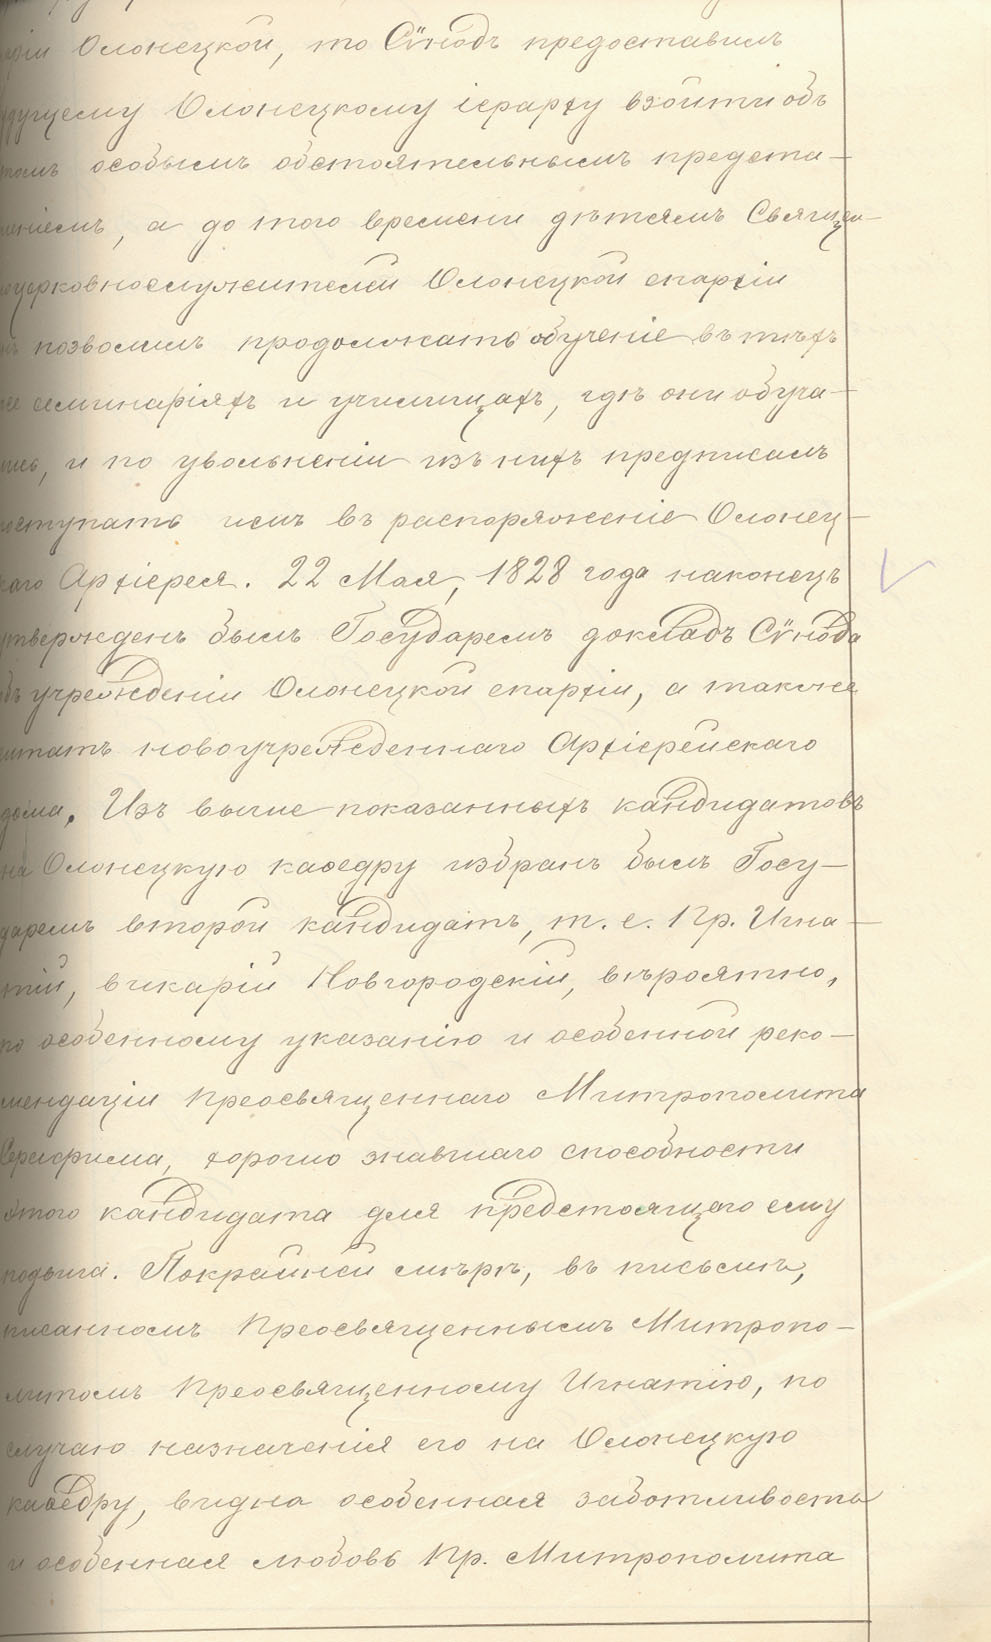 Олонецкой, то Сѵнодъ предоставилъ
Олонецкому іерарху взойти объ
особымъ обстоятельнымъ предста-
, а до того времени дѣтямъ Священ-
церковнослужителей Олонецкой епархіи
позволилъ продолжать обученіе въ тѣхъ
же семинаріяхъ и училищахъ, гдѣ они обуча-
лись, и по увольненіи изъ нихъ предписалъ
поступать имъ въ распоряженіе Олонец-
каго Архіерея. 22 Мая, 1828 года наконецъ
утвержденъ былъ Государемъ докладъ Сѵнода
объ учрежденіи Олонецкой епархіи, а также
штатъ новоучрежденнаго Архіерейскаго
дома. Изъ выше показанныхъ кандидатовъ
на Олонецкую каѳедру избранъ былъ Госу-
даремъ второй кандидатъ, т. е. Пр. Игна-
тій, викарій Новгородскій, вѣроятно,
по особенному указанію и особенной реко-
мендаціи Преосвященнаго Митрополита
Серафима, хорошо знавшаго способности
этого кандидата для предстоящего ему
подвига. Покрайней мѣрѣ, въ письмѣ,
писанномъ Преосвященнымъ Митропо-
литомъ Преосвященному Игнатію, по
случаю назначенія его на Олонецкую
каѳедру, видна особенная заботливость
и особенная любовь Пр. Митрополита